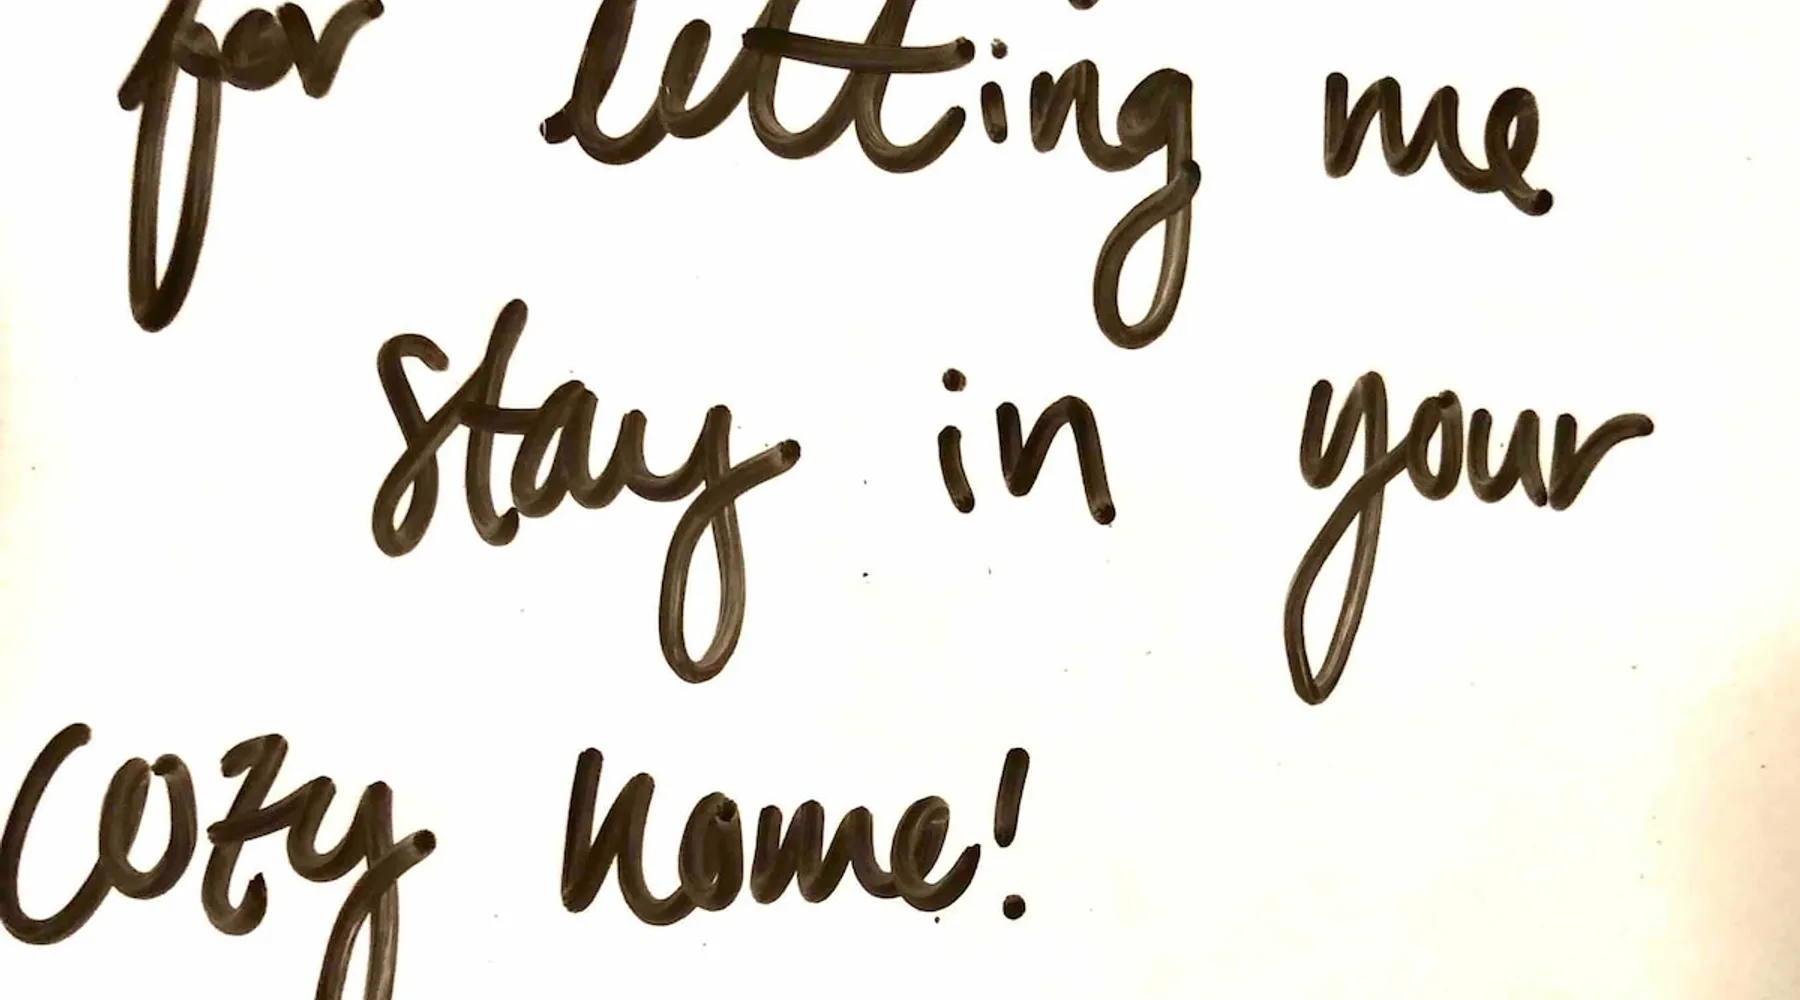 for letting me
stay in your
cozy home!